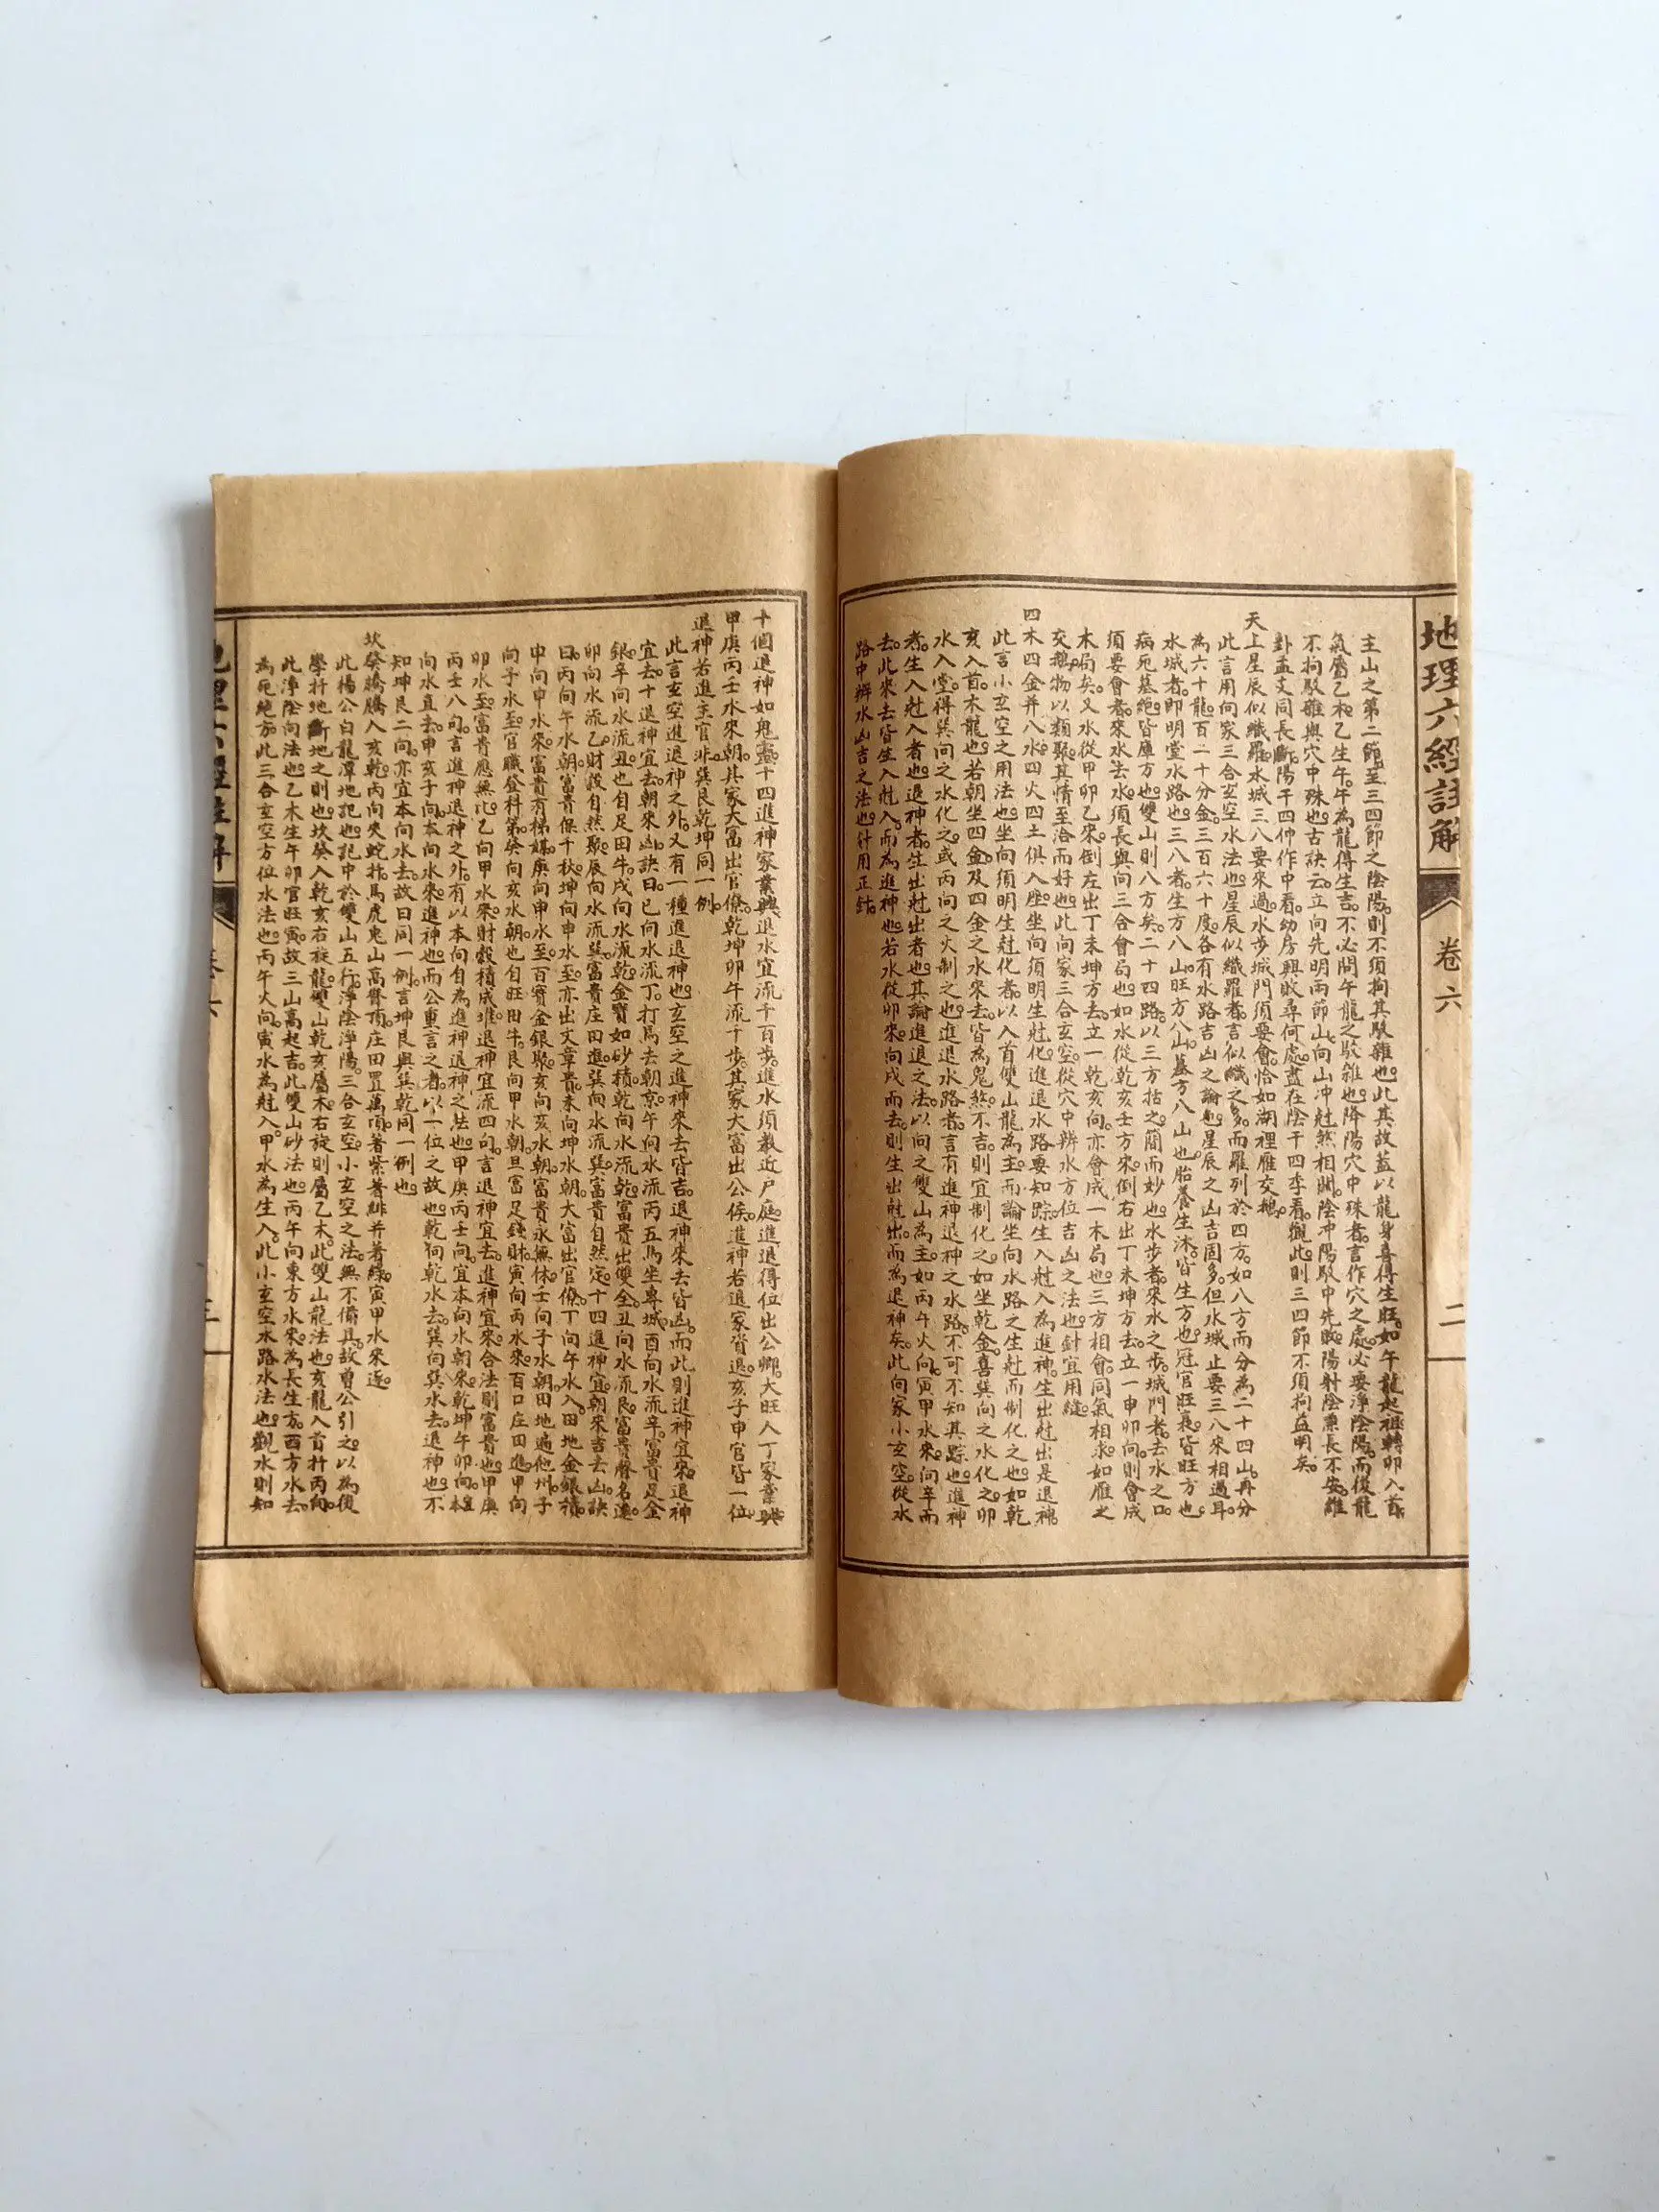 地理六經註解 卷六 二
主山之第二節至三四節之陰陽則不須拘其駁雜也此其故蓋以龍身喜得生旺如午龍起祖轉卯入首
氣屬乙木乙生午午為龍得生吉不必問午龍之駁雜也降陽穴中殊者言作穴之處必要淨陰陽而後龍
不拘駁雜與穴中殊也古訣云立向先明兩節山向山冲尅煞相關陰冲陽駁中先敗陽射陰兼長不安維
卦孟支同長斷陽干四仲作中看幼房興敗尋何處盡在陰干四季看觀此則三四節不須拘益明矣
天上星辰似織羅水城三八要來過水步城門須要會恰如湖裡雁交鵝
此言用向家三合玄空水法也星辰似織羅者言似織之多而羅列於四方如八方而分為二十四山再分
為六十龍百二十分金三百六十度各有水路吉凶之論也星辰之凶吉固多但水城止要三八來相過耳
水城者即明堂水路也三八者生方八山旺方八山墓方八山也胎養生沐皆生方也冠官旺衰皆旺方也
病死墓絶皆庫方也雙山則八方矣二十四路以三方括之簡而妙也水步者來水之步城門者去水之口
須要會者來水去水須長與向三合會局也如水從乾亥壬方來倒右出丁未坤方去立一申卯向則會成
木局矣又水從甲卯乙來倒左出丁未坤方去立一乾亥向亦會成一木局也三方相會同氣相求如雁之
交鵝物以類聚其情至洛而好也此向家三合玄空從穴中辨水方位吉凶之法也針宜用縫
四木四金并八水四火四土俱入座坐向須明生尅化進退水路要知踪生入尅入為進神生出尅出是退神
此言小玄空之用法也坐向須明生尅化者以入首雙山龍為主而論坐向水路之生尅而制化之也如乾
亥入首木龍也若朝坐四金及四金之水來去皆為鬼煞不吉則宜制化之如坐乾金喜巽向之水化之卯
水入堂得巽向之水化之或丙向之火制之也進退水路者言有進神退神之水路不可不知其踪也進神
者生入尅入者也退神者生出尅出者也其論進退之法以向之雙山為主如丙午火向寅甲水來向辛而
去此來去皆生入尅入而為進神也若水從卯來向戌而去則生出尅出而為退神矣此向家小玄空從水
路中辨水凶吉之法也針用正針
十個退神如鬼靈十四進神家業興退水宜流千百步進水須教近戶庭進退得位出公卿大旺人丁家業興
甲庚丙壬水來朝其家大富出官僚乾坤卯午流千步其家大富出公侯進神若退家資退亥子申官皆一位
退神若進主官非巽艮乾坤同一例
此言玄空進退神之外又有一種進退神也玄空之進神來去皆吉退神來去皆凶而此則進神宜來退神
宜去十退神宜去朝來凶訣曰巳向水流丁打馬去朝京午向水流丙五馬坐專城酉向水流辛富貴足金
銀辛向水流丑也自足田牛戌向水流乾金寶如砂積乾向水流乾富貴出雙全丑向水流艮富貴聲名遠
卯向水流乙財穀自然聚辰向水流巽富貴庄田進巽向水流巽富貴自然定十四進神宜朝來吉去凶訣
曰丙向午水朝富貴保千秋坤向申水至亦出文章貴未向坤水朝大富出官僚丁向午水入田地金銀積
申向申水來富貴有梯媒庚向申水至百寶金銀聚亥向亥水朝富貴永無休壬向子水朝田地遍他州子
向子水至官職登科第癸向亥水朝也自旺田牛艮向甲水朝旦富足錢財寅向丙水來百口庄田進甲向
卯水至富貴應無比乙向甲水來財穀積成堆退神宜流四句言退神宜去進神宜來合法則富貴也甲庚
丙壬八句言進神退神之外有以本向自為進神退神之法也甲庚丙壬向宜本向水朝來乾坤午卯向本
向水直去申亥子向本向水來進神也而公重言之者以一位之故也乾向乾水去巽向巽水去退神也不
知坤艮二向亦宜本向水去故曰同一例言坤艮與巽乾同一例也
坎癸騰騰入亥乾丙向失蛇扦馬虎兎山高聳頂庄田置萬頃著紫著緋并著綠寅甲水來逐
此楊公白龍潭地記也記中於雙山五行淨陰淨陽三合玄空小玄空之法無不備具故曾公引之以為後
學扦地斷地之則也坎癸入乾亥右旋龍雙山乾亥屬木右旋則屬乙木此雙山龍法也亥龍入首扦丙向
此淨陰向法也乙木生午卯官旺寅故三山高起吉此雙山砂法也丙午向東方水來為長生方酉方水去
為死絶方此三合玄空方位水法也丙午火向寅水為尅入甲水為生入此小玄空水路水法也觀水則知